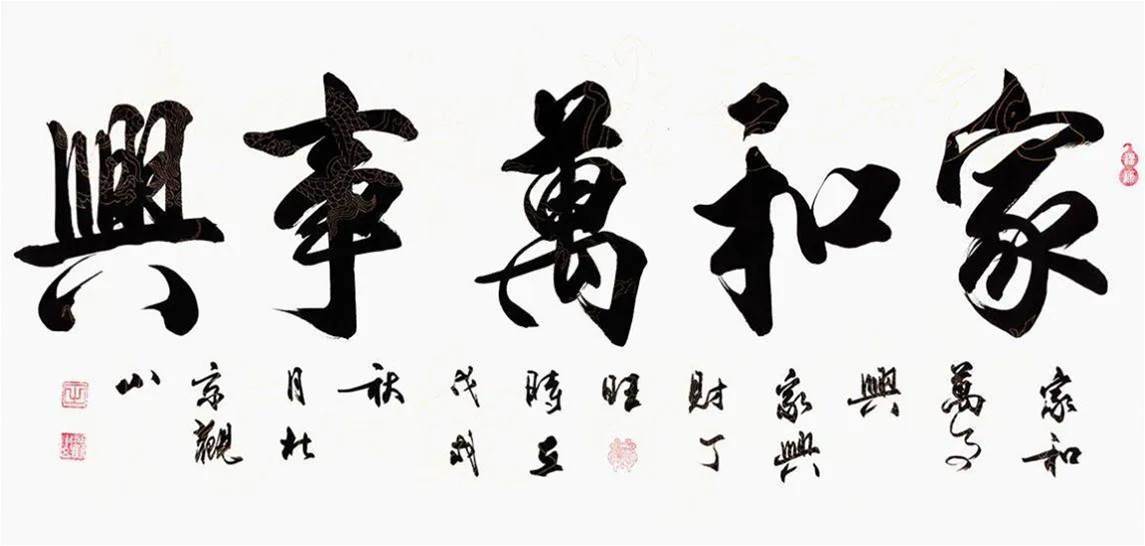 家和萬事興
家和
萬事
興
家興
財丁
旺
時在
戊戌
秋
月於
京觀
山